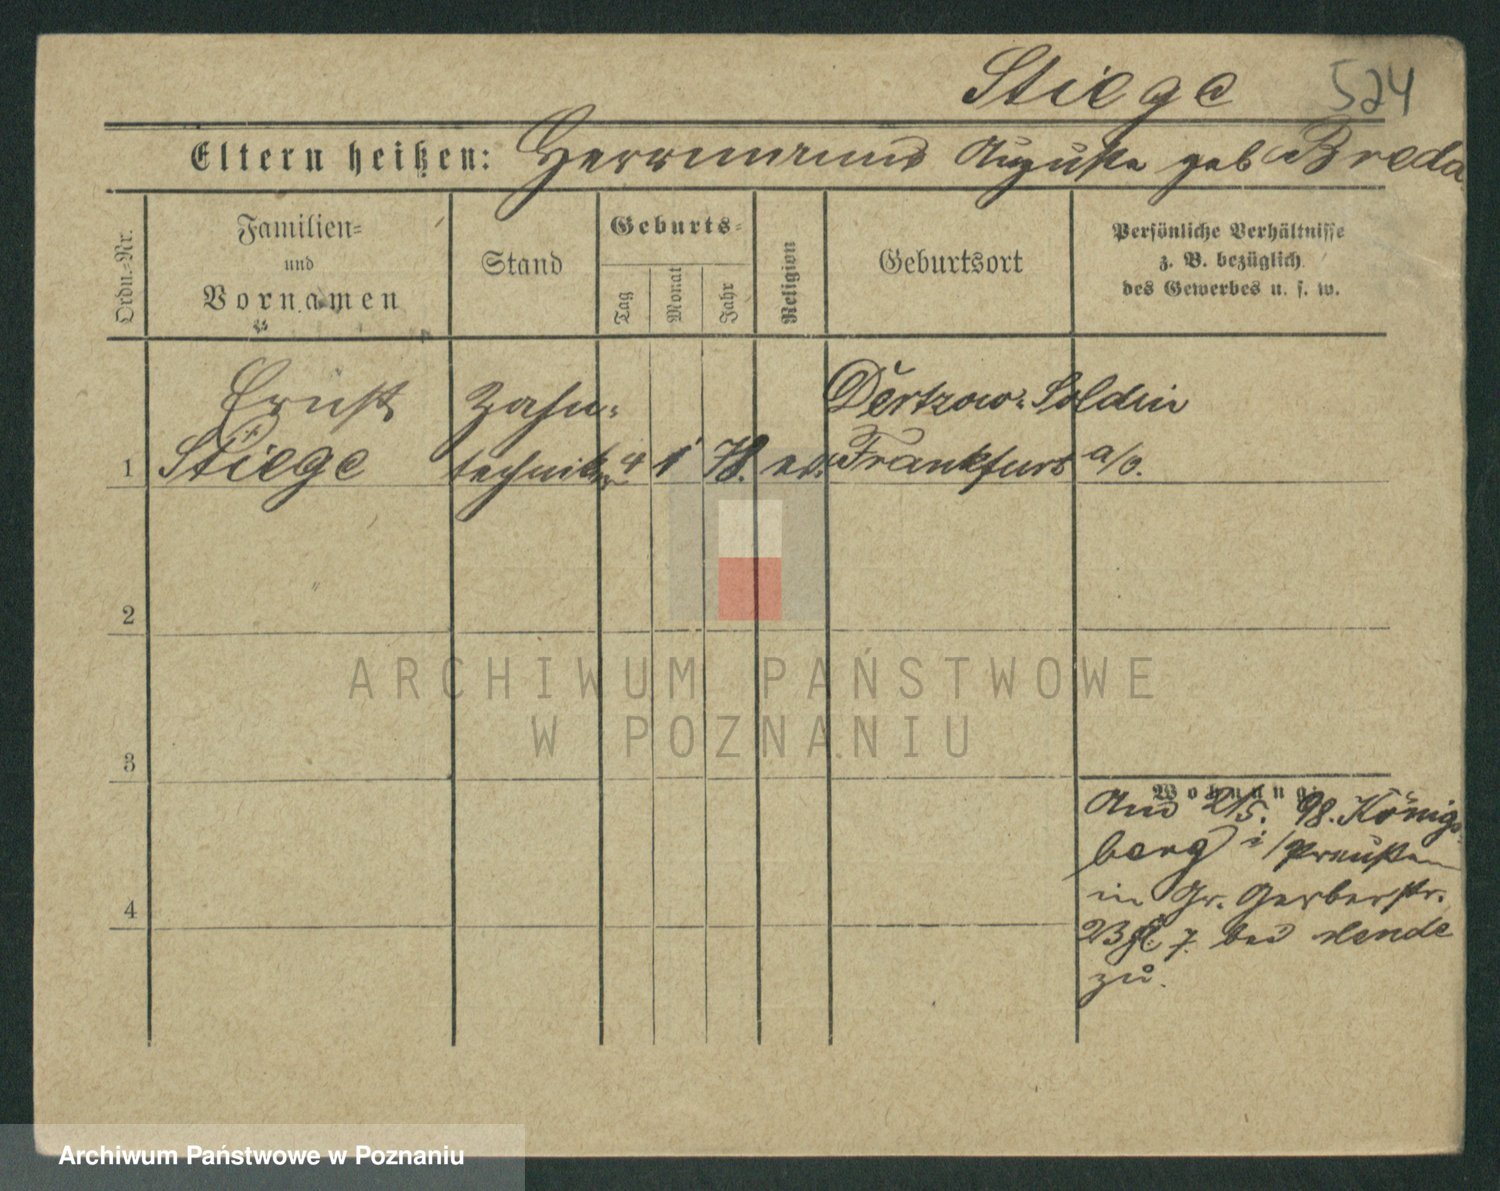 Stiege 524
Eltern heißen: Herrmann Auguste geb Breda
Ordn.-Nr.
Familien-
und
Vornamen
Stand
Geburts-
Tag
Monat
Jahr
Religion
Geburtsort
Persönliche Verhältnisse
z. B. bezüglich
des Gewerbes u. s. w.
Ernst Zahn- Dertzow-Soldin
1 Stiege techniker 4 1 78. ev. Frankfurt a/O.
2
ARCHIWUM PAŃSTWOWE
W POZNANIU
3
Wohnung
2/5. 98. Königs-
berg i/Preußen
in Gr. Gerberstr.
bei
zu.
4
Archiwum Państwowe w Poznaniu